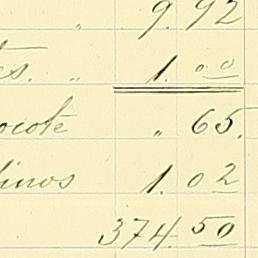 " 9.92
es. " 1.00
ocote " 65.
linos 1.02
374.50